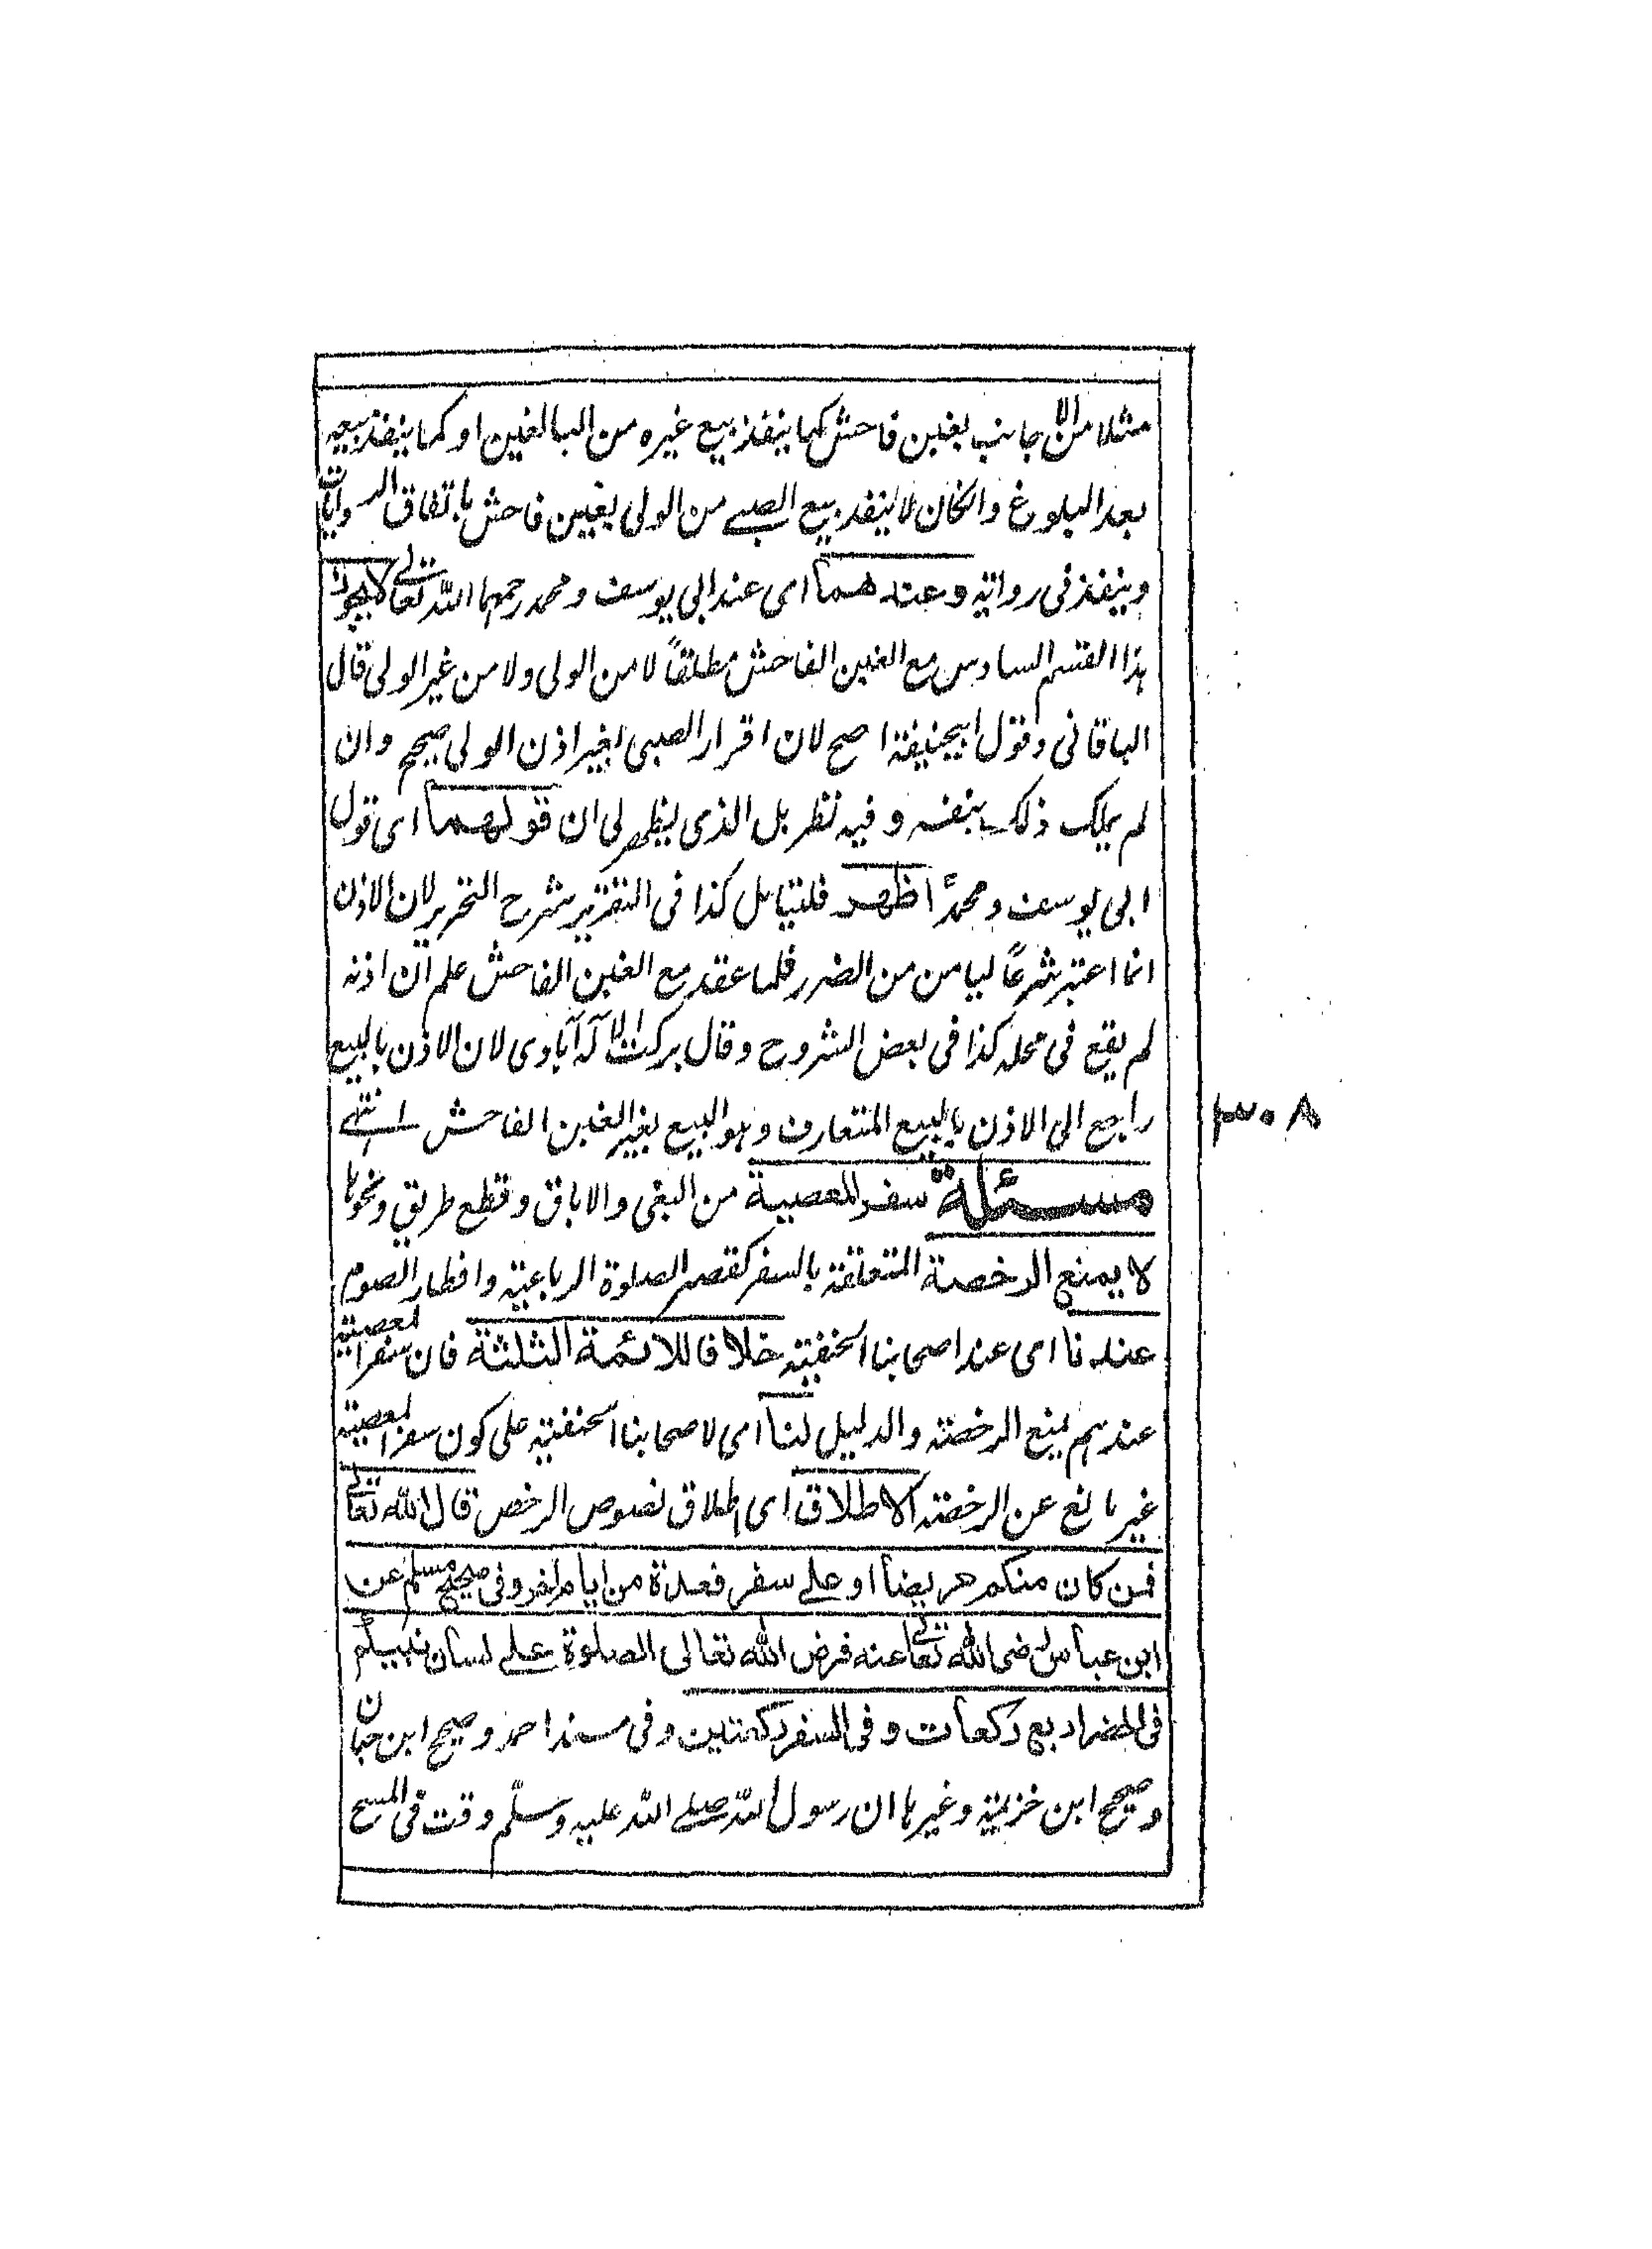 مثلا من الاجانب بغبن فاحش كما ينفذ بيع غيره من البالغين او كما ينفذ بيعه
بعد البلوغ وان كان لا ينفذ بيع الصبے من الولی بغبن فاحش باتفاق الروايات
وينفذ فی رواية وعندهما ای عند ابی يوسف ومحمد رحمهما الله تعالے لا يجوز
هذا القسم السادس مع الغبن الفاحش مطلقاً لا من الولی ولا من غير الولی قال
الباقانی وقول ابيحنيفة اصح لان اقرار الصبی بغير اذن الولی صحيح وان
لم يملك ذلك بنفسه وفيه نظر بل الذی يظهر لی ان قولهما ای قول
ابی يوسف ومحمدؒ اظهر فليتامل كذا فی التقرير شرح التحرير لان الاذن
انما اعتبر شرعاً ليامن من الضرر فلما عقد مع الغبن الفاحش علم ان اذنه
لم يقع فی محله كذا فی بعض الشروح وقال بركت الاله آبادی لان الاذن بالبيع
راجع الی الاذن بالبيع المتعارف وهو البيع بغير الغبن الفاحش انتهے
۳۰۸
مسئلة سفر المعصية من البغی والاباق وقطع طريق ونحوها
لا يمنع الرخصة المتعلقة بالسفر كقصر الصلوة الرباعية وافطار الصوم
عندنا ای عند اصحابنا الحنفية خلافا للائمة الثلثة فان سفر المعصية
عندهم يمنع الرخصة والدليل لنا ای لاصحابنا الحنفية علی كون سفر المعصية
غير مانع عن الرخصة الاطلاق ای اطلاق نصوص الرخص قال الله تعالے
فمن كان منكم مريضا او علے سفر فعدة من ايام اخر وفی صحيح مسلم عن
ابن عباس رضی الله تعالے عنه فرض الله تعالی الصلوة علے لسان نبيكم
فی الحضر اربع ركعات وفی السفر ركعتين وفی مسند احمد وصحيح ابن حبان
وصحيح ابن خزيمة وغيرها ان رسول الله صلے الله عليه وسلم وقت فی المسح